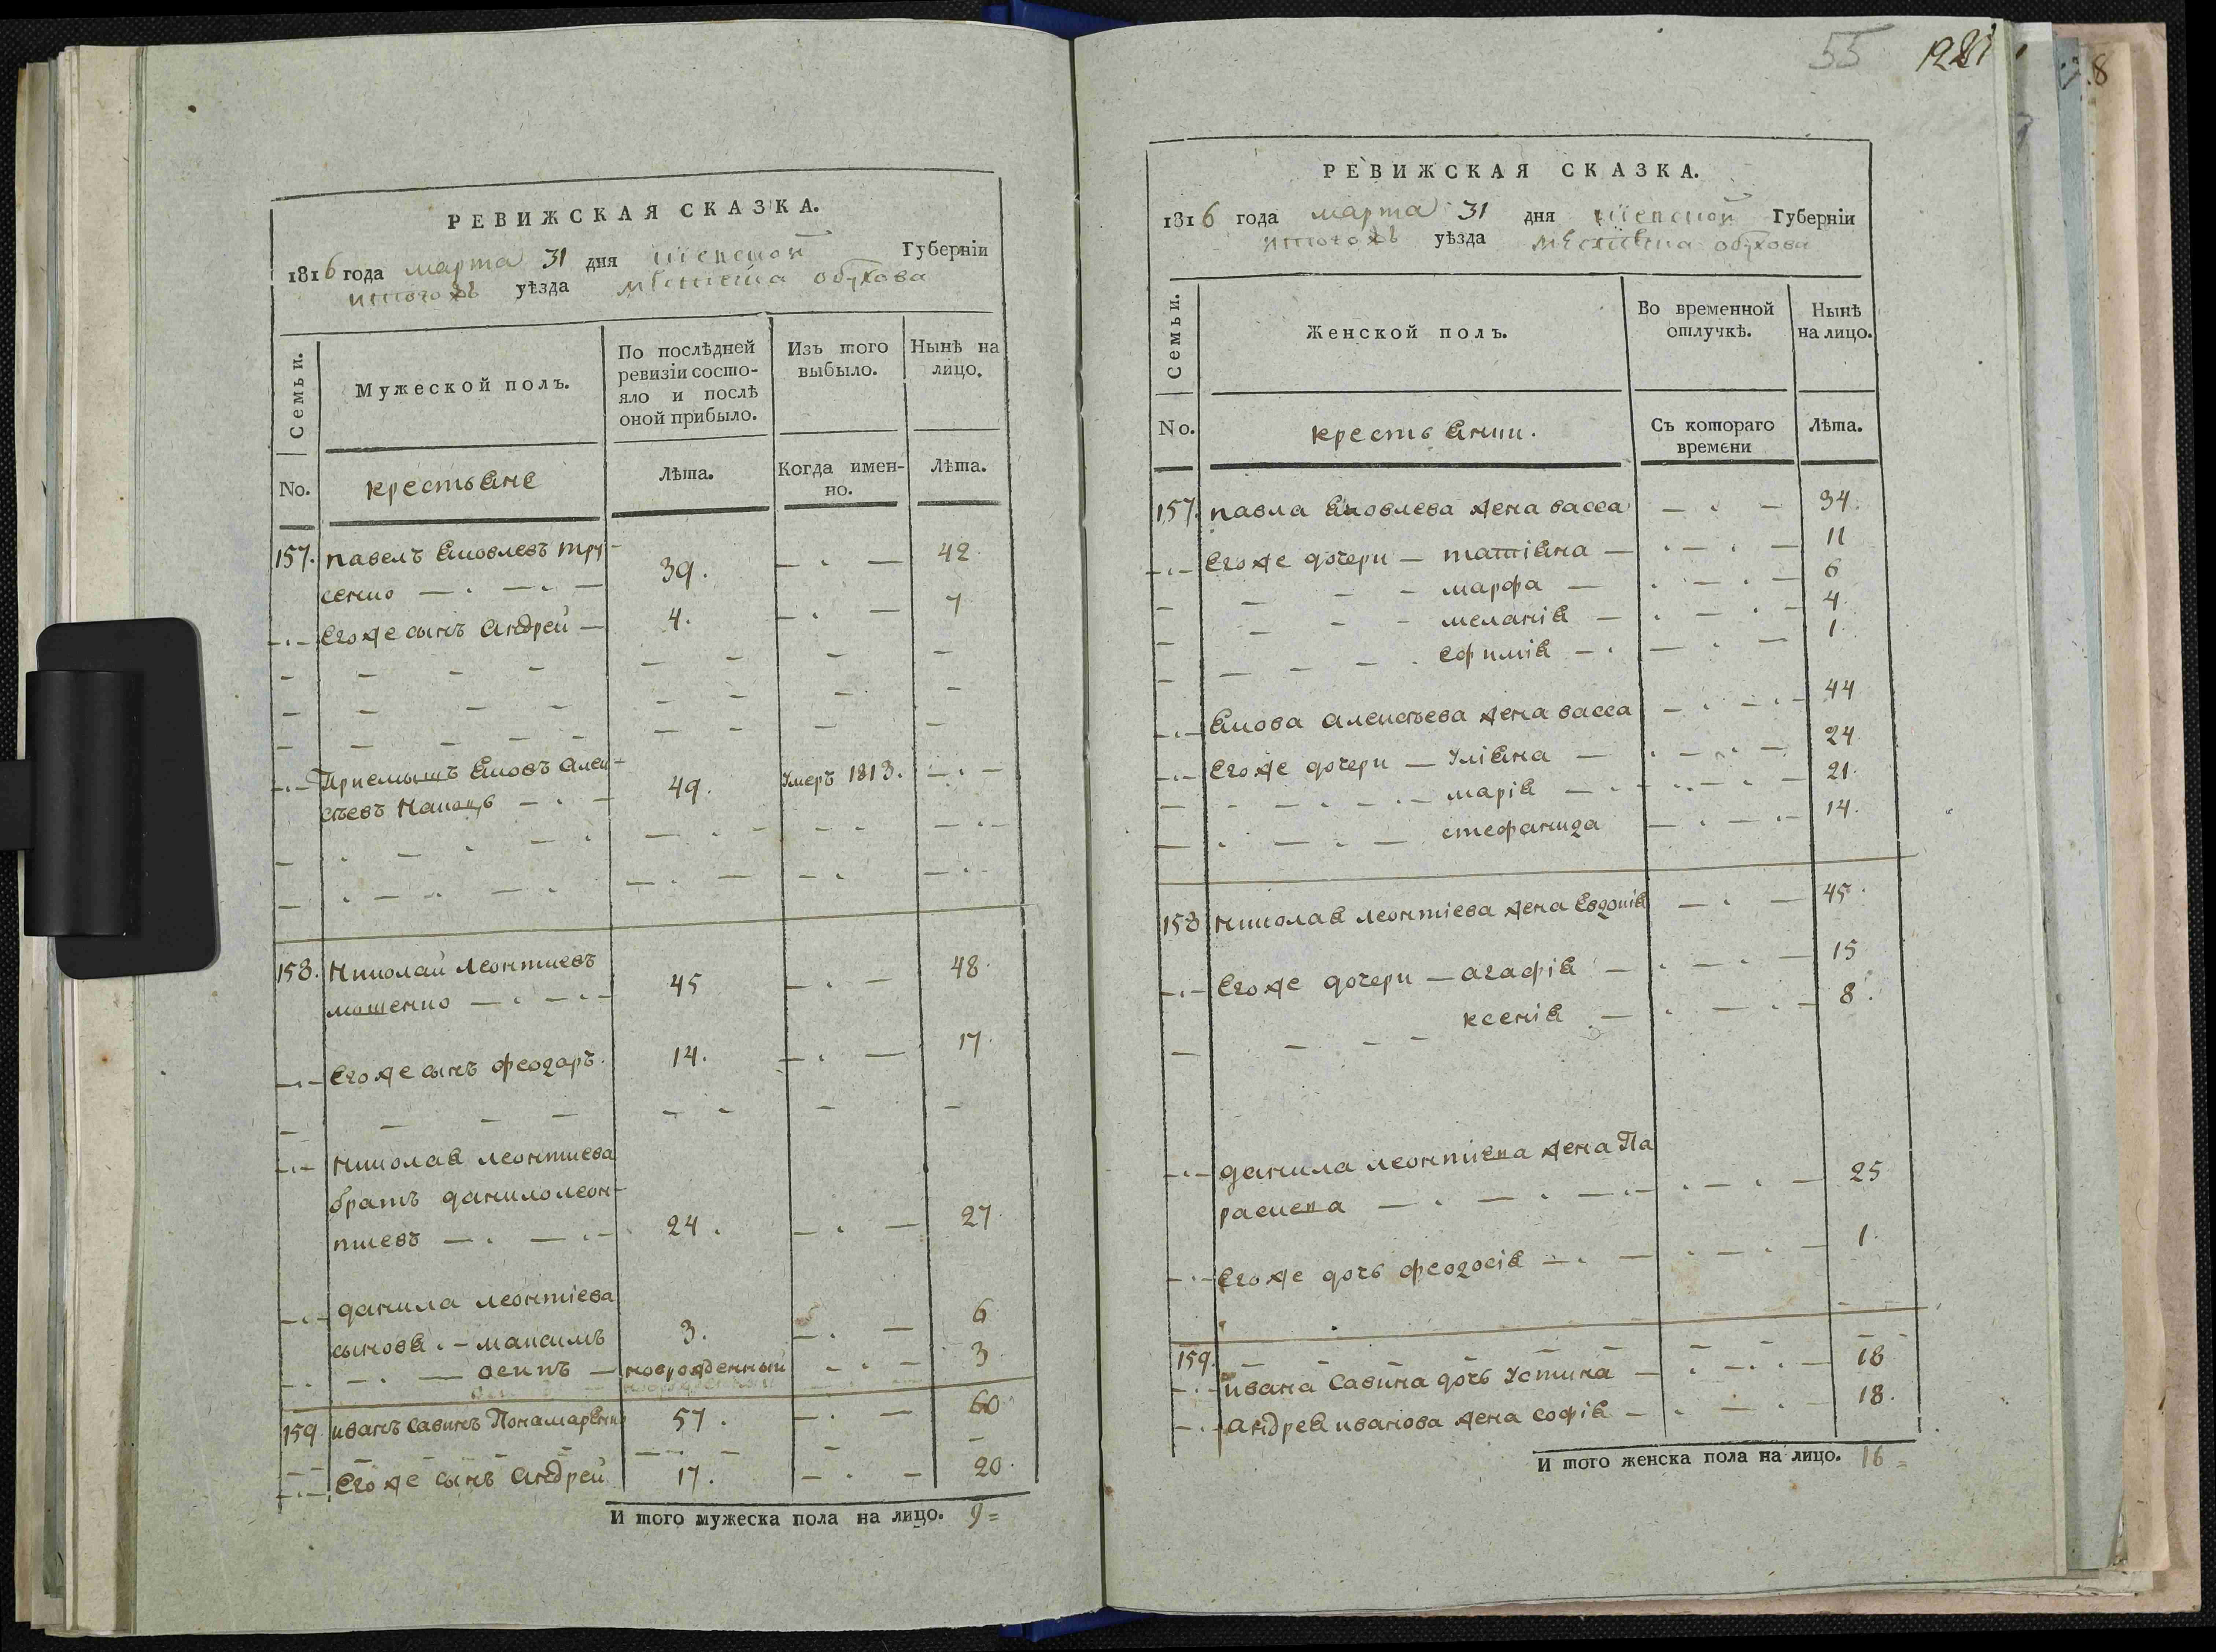 55 1281
8
РЕВИЖСКАЯ СКАЗКА.
1816 года марта 31 дня киевской Губерніи
уѣзда мѣстечка обухова
Семьи.
Мужеской полъ.
По послѣдней ревизіи состо-
яло и послѣ
оной прибыло.
Изъ того
выбыло.
Нынѣ на
лицо.
No. крестьяне Лѣта. Когда имен-
но. Лѣта.
157. павелъ яковлевъ тру-
сенко — . — . — 39. — . — 42
— . — егоже сынъ андрей — 4. — . — 7
— . — Приемышъ яковъ алек-
сѣевъ — . — 49. Умеръ 1813. — . —
158. николай леонтиевъ
мошенко — . — . — 45 — . — 48.
— . — егоже сынъ феодаръ. 14. — . — 17.
— . — николая леонтиева
братъ данило леон-
тиевъ — . — . — 24. — . — 27
— . — данила леонтіева
сыновя . — максимъ 3. — . — 6
— . — осипъ — новрожденный — . — 3
159. иванъ савинъ Понамаренко 57. — . — 60
— . — егоже сынъ андрей 17. — . — 20.
И того мужеска пола на лицо. 9 =
РЕВИЖСКАЯ СКАЗКА.
1816 года марта 31 дня киевской Губерніи
уѣзда мѣстечка обухова
Семьи.
Женской полъ.
Во временной
отлучкѣ.
Нынѣ
на лицо.
No. крестьянки. Съ котораго
времени Лѣта.
157. павла яковлева жена васса — . — 34.
— . — егоже дочери — таттіяна — . — . — 11
марфа — . — . — 6
меланія — . — . — 4.
ефимія — . — . — 1.
— . — якова алексѣева жена васса — . — . — 44
— . — егоже дочери — Уліяна — . — . — 24
марія — . — . — 21.
стефанида — . — . — 14.
158 николая леонтіева жена евдокія — . — 45.
— . — егоже дочери — агафія — . — . — 15
ксенія — . — . — 8.
— . — данила леонтіева жена Па
раскева — . — . — . — 25
— . — егоже дочь феодосія — . — . — 1.
159.
— . — ивана савина дочь Устина — . — . — 18
— . — андрея иванова жена софія — . — . — 18.
И того женска пола на лицо. 16 =